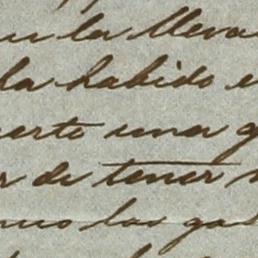 la lleva
la habido e
erte una g
r de tener
las ga